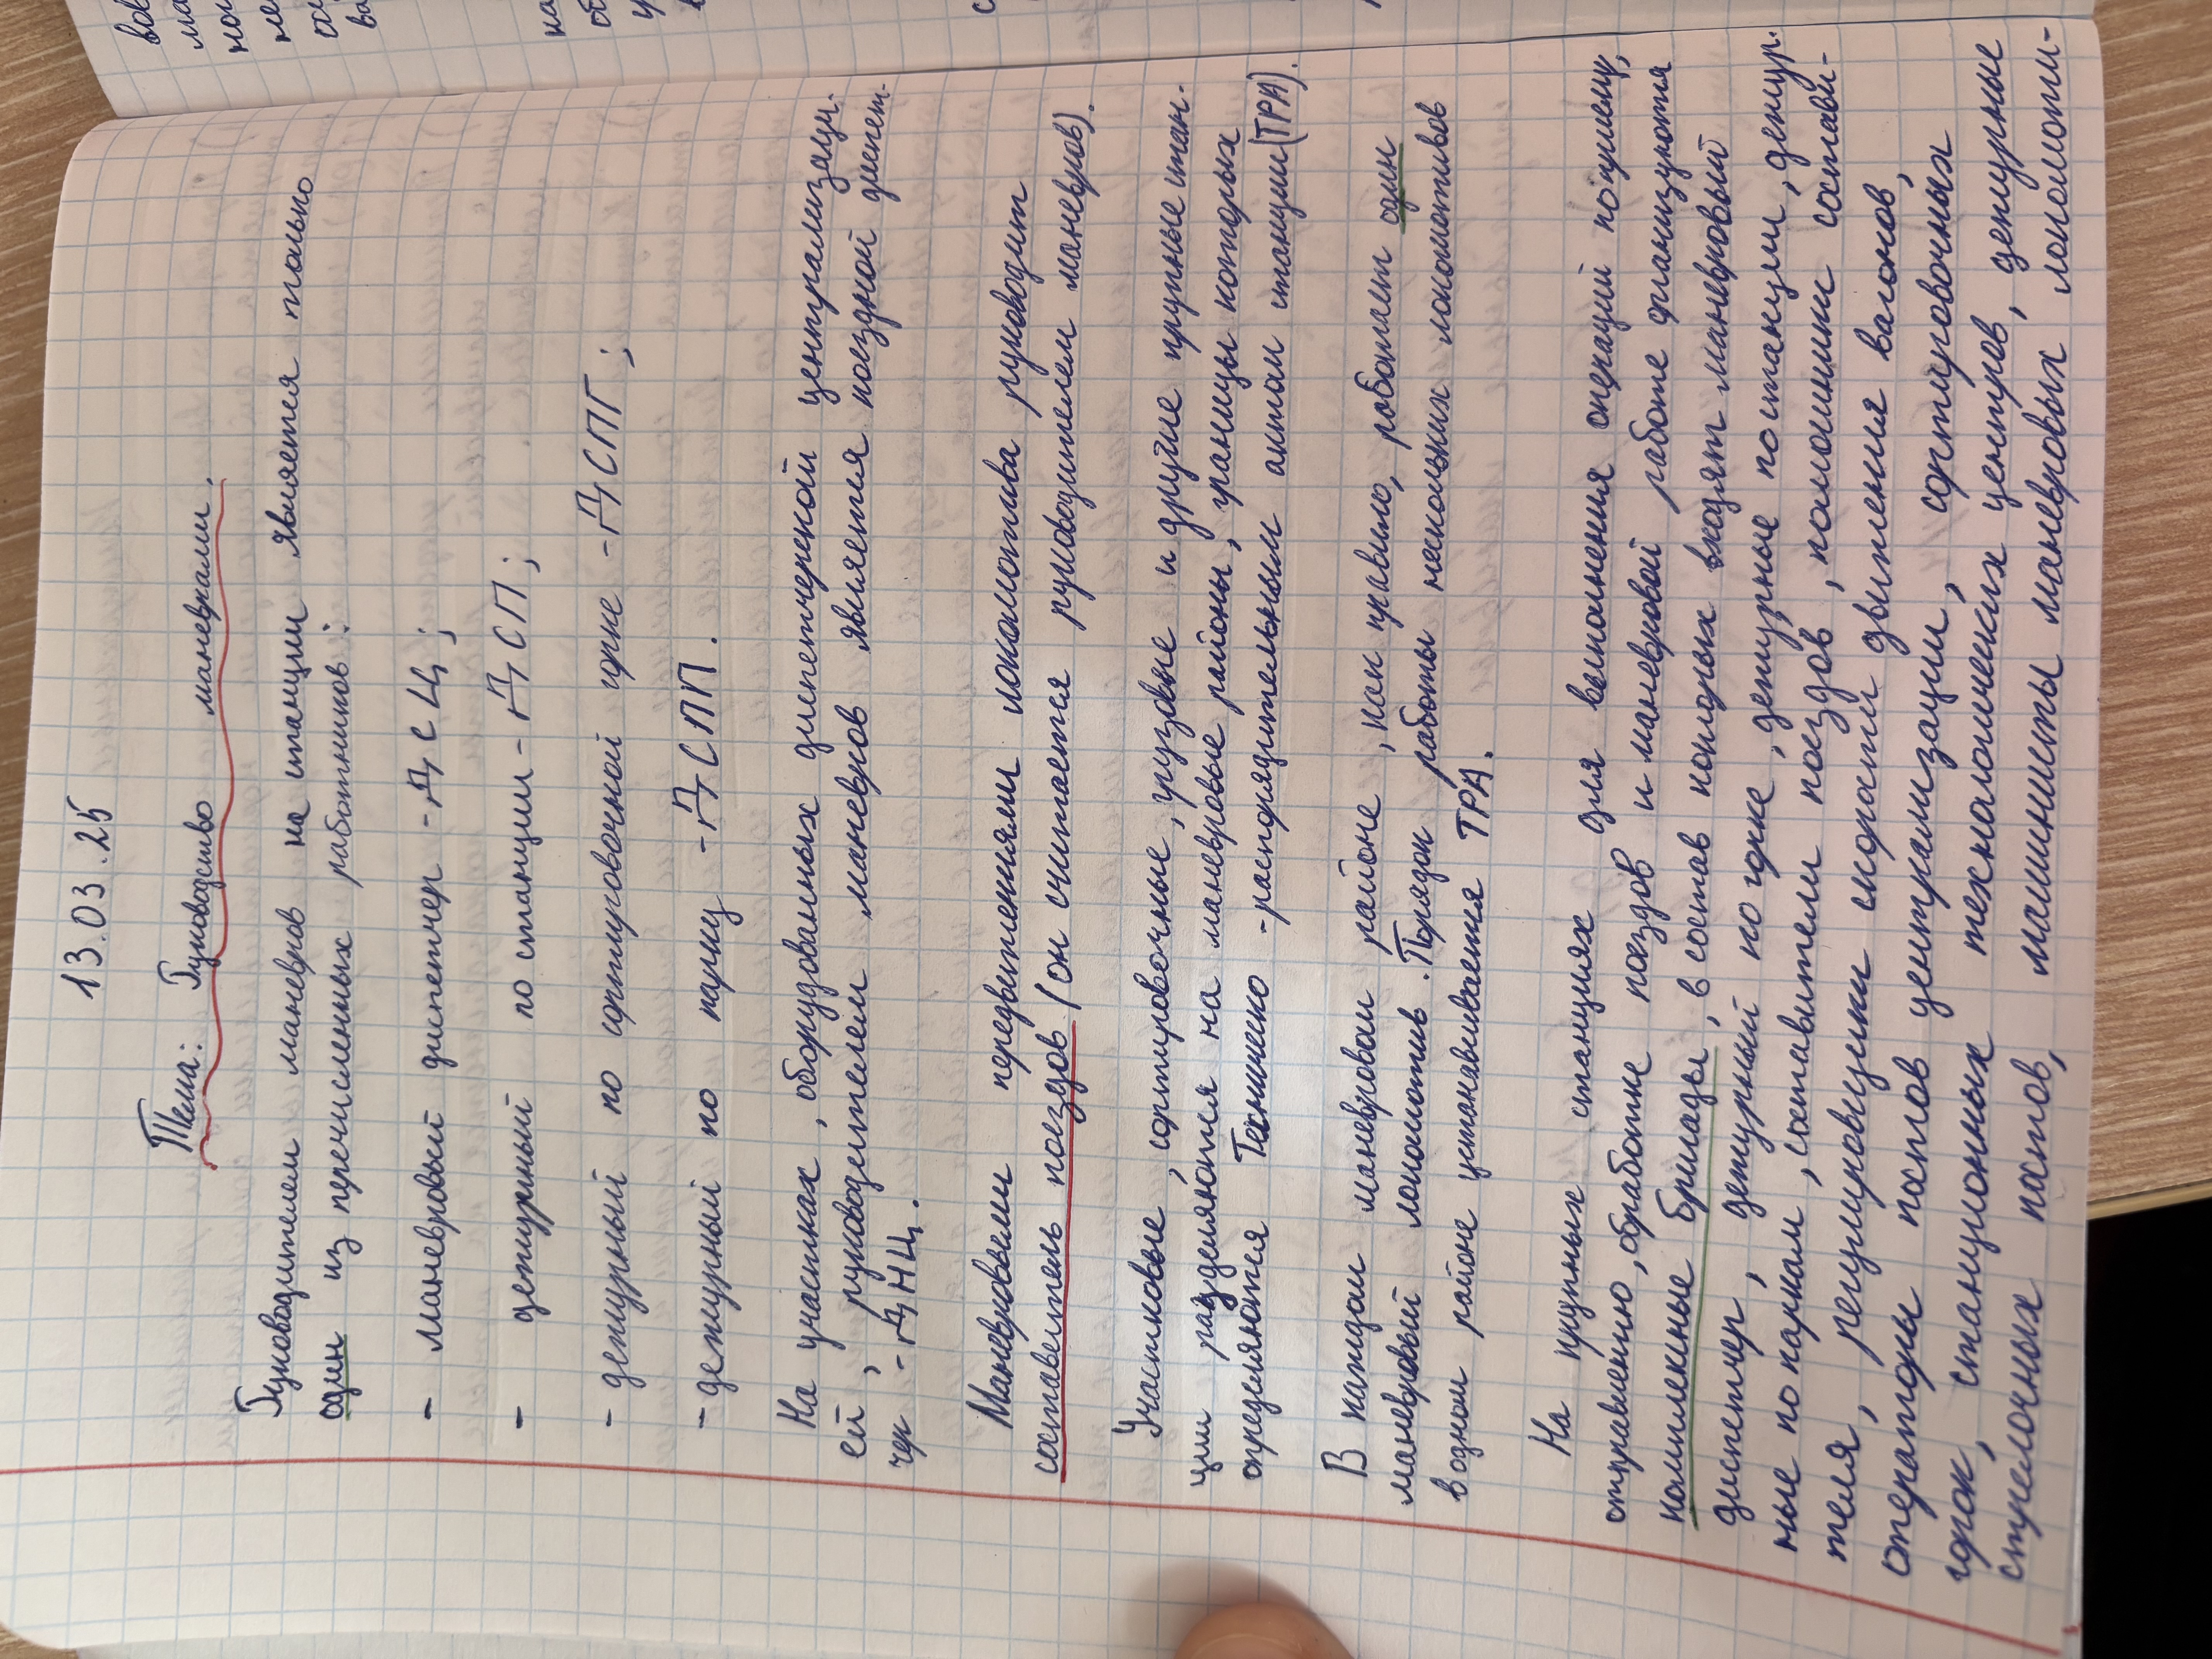 13.03.25
Тема: Руководство маневрами.
Руководителем маневров на станции является только
один из перечисленных работников:
- маневровый диспетчер - ДСЦ;
- дежурный по станции - ДСП;
- дежурный по сортировочной горке - ДСПГ;
- дежурный по парку - ДСПП.
На участках, оборудованных диспетчерской централизаци-
ей, руководителем маневров является поездной диспет-
чер - ДНЦ.
Маневровыми передвижениями локомотива руководит
составитель поездов (он считается руководителем маневров).
Участковые, сортировочные, грузовые и другие крупные стан-
ции разделяются на маневровые районы, границы которых
определяются Техническо-распорядительным актом станции (ТРА).
В каждом маневровом районе, как правило, работает один
маневровый локомотив. Порядок работы нескольких локомотивов
в одном районе устанавливается ТРА.
На крупных станциях для выполнения операций по приему,
отправлению, обработке поездов и маневровой работе организуются
комплексные бригады, в состав которых входят маневровый
диспетчер, дежурный по горке, дежурные по станции, дежур.
ные по паркам, составители поездов, помощники состави-
теля, регулировщики скорости движения вагонов,
операторы постов централизации, сортировочных
горок, станционных технологических центров, дежурные
стрелочных постов, машинисты маневровых локомоти-